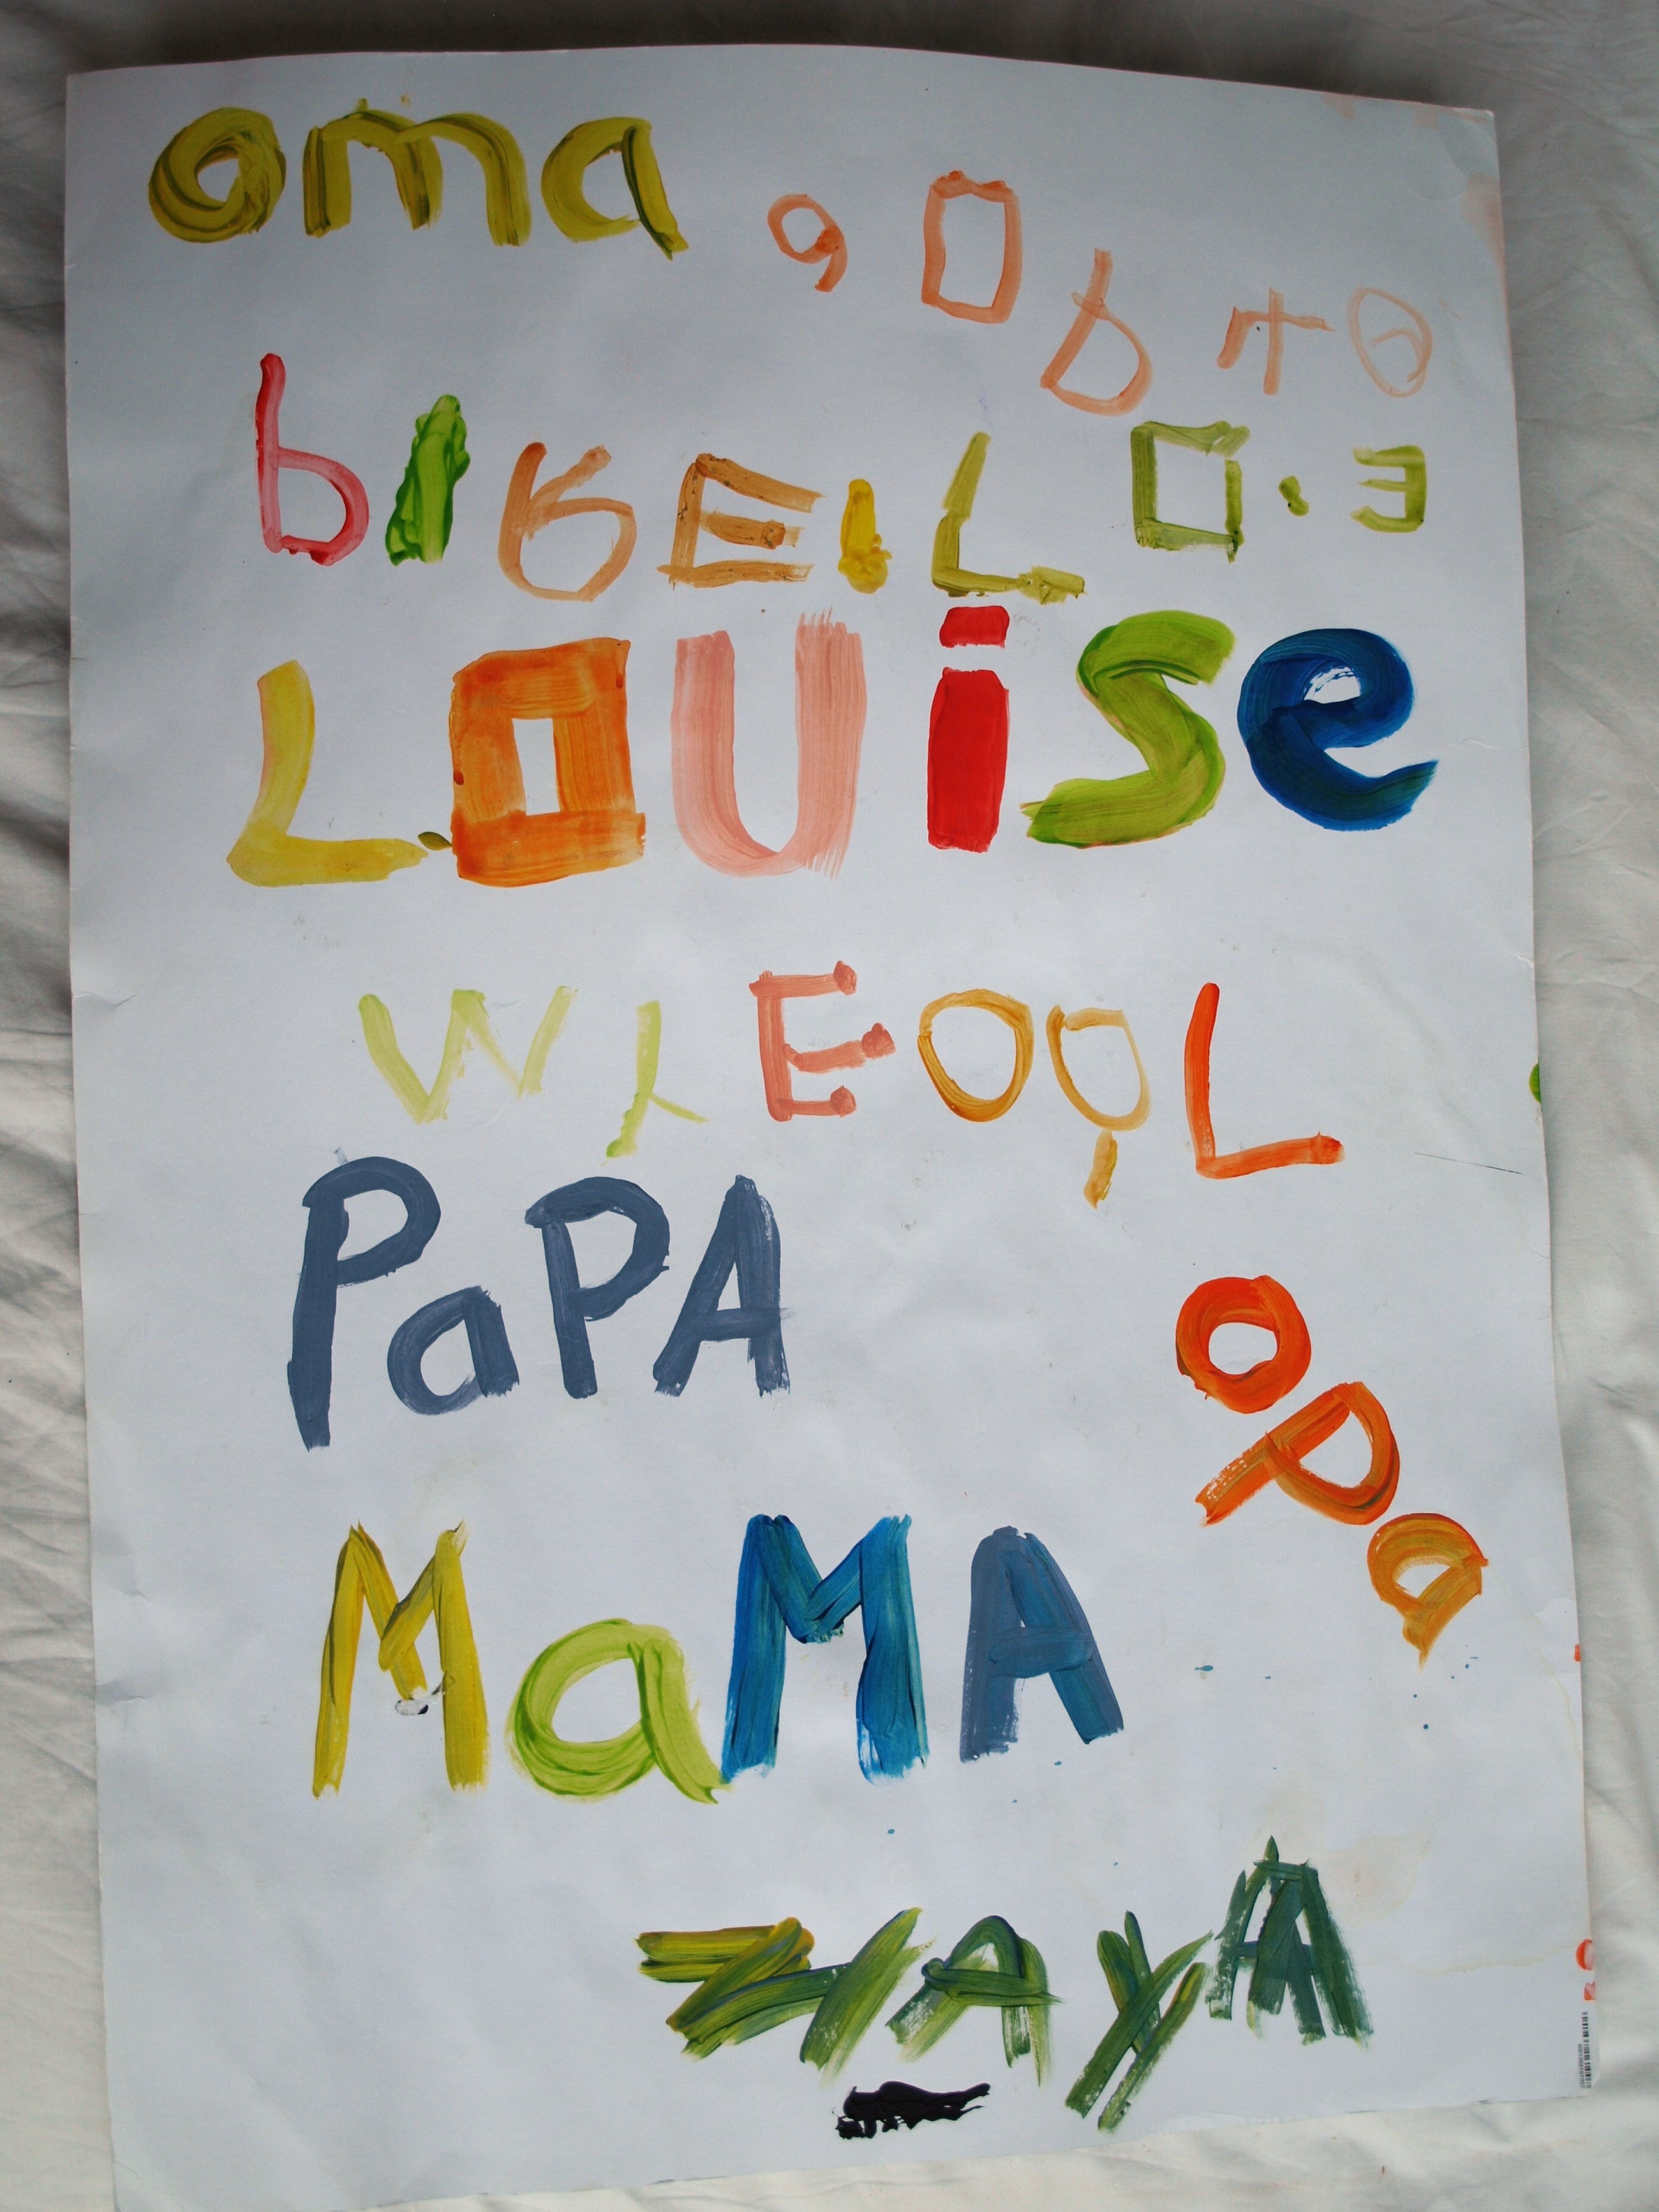 oma
9 0 b 4 0
b I G E I L O . E
LOUise
W Y E O Q L
PaPA
oPa
MaMA
MAYA